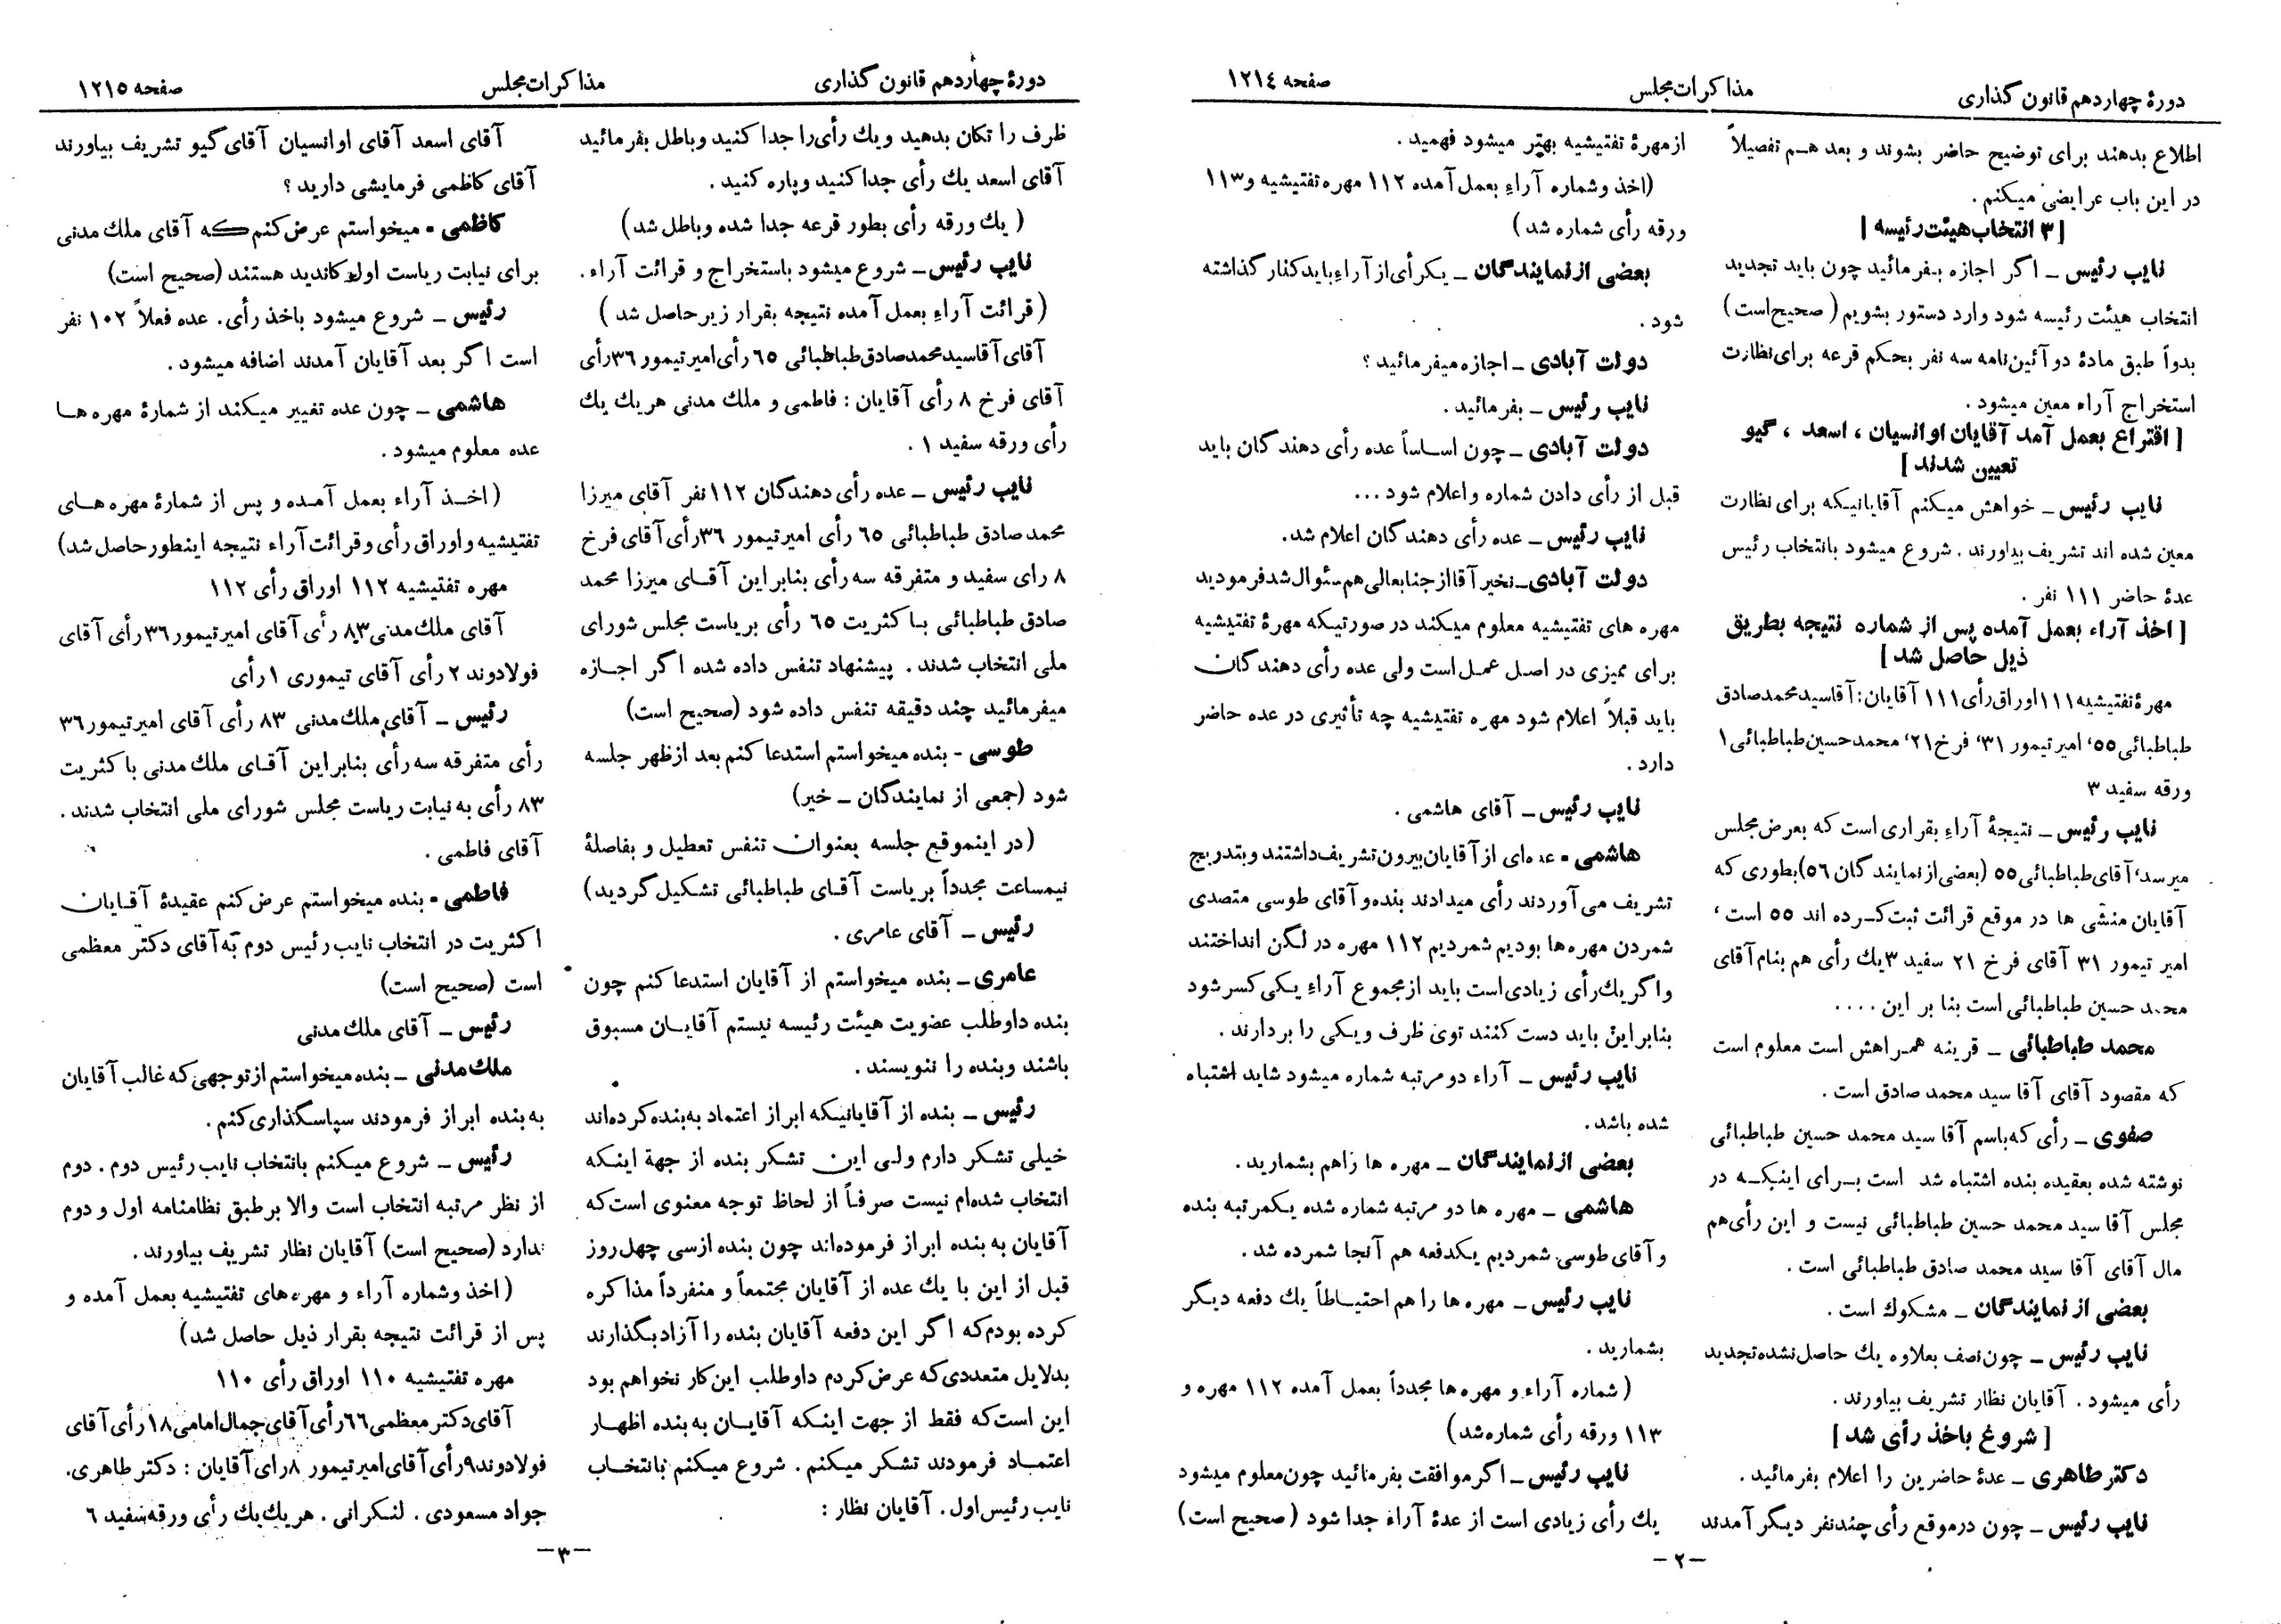 دورهٔ چهاردهم قانون گذاری
مذاکرات مجلس
صفحه ۱۲۱٤
اطلاع بدهند برای توضیح حاضر بشوند و بعد هـم تفصیلاً
در این باب عرایضی میکنم .
[ ۳ انتخاب هیئت رئیسه ]
نایب رئیس ــ اگر اجازه بـفرمائید چون باید تجدید
انتخاب هیئت رئیسه شود وارد دستور بشویم ( صحیح است )
بدواً طبق مادهٔ دو آئین نامه سه نفر بحکم قرعه برای نظارت
استخراج آراء معین میشود .
[ اقتراع بعمل آمد آقایان اوانسیان ، اسعد ، گیو
تعیین شدند ]
نایب رئیس ــ خواهش میکنم آقایانیکه برای نظارت
معین شده اند تشریف بیاورند . شروع میشود بانتخاب رئیس
عدهٔ حاضر ۱۱۱ نفر .
[ اخذ آراء بعمل آمده پس از شماره نتیجه بطریق
ذیل حاصل شد ]
مهرهٔ تفتیشیه ۱۱۱ اوراق رأی ۱۱۱ آقایان : آقا سید محمد صادق
طباطبائی ٥٥، امیر تیمور ۳۱، فرخ ۲۱، محمد حسین طباطبائی ۱
ورقه سفید ۳
نایب رئیس ــ نتیجهٔ آراءِ بقراری است که بعرض مجلس
میرسد، آقای طباطبائی ٥٥ (بعضی از نمایندگان ٥٦) بطوری که
آقایان منشی ها در موقع قرائت ثبت کـرده اند ٥٥ است ،
امیر تیمور ۳۱ آقای فرخ ۲۱ سفید ۳ یك رأی هم بنام آقای
محمد حسین طباطبائی است بنا بر این ....
محمد طباطبائی ــ قرینه همراهش است معلوم است
که مقصود آقای آقا سید محمد صادق است .
صفوی ــ رأی که باسم آقا سید محمد حسین طباطبائی
نوشته شده بعقیده بنده اشتباه شد است بـرای اینکـه در
مجلس آقا سید محمد حسین طباطبائی نیست و این رأی هم
مال آقای آقا سید محمد صادق طباطبائی است .
بعضی از نمایندگان ــ مشکوك است .
نایب رئیس ــ چون نصف بعلاوه یك حاصل نشده تجدید
رأی میشود . آقایان نظار تشریف بیاورند .
[ شروع باخذ رأی شد ]
دکتر طاهری ــ عدهٔ حاضرین را اعلام بفرمائید .
نایب رئیس ــ چون درموقع رأی چندنفر دیگر آمدند
ازمهرهٔ تفتیشیه بهتر میشود فهمید .
(اخذ وشماره آراءِ بعمل آمده ۱۱۲ مهره تفتیشیه و ۱۱۳
ورقه رأی شماره شد )
بعضی از نمایندگان ــ یکرأی از آراءِ باید کنار گذاشته
شود .
دولت آبادی ــ اجازه میفرمائید ؟
نایب رئیس ــ بفرمائید .
دولت آبادی ــ چون اساساً عده رأی دهندگان باید
قبل از رأی دادن شماره واعلام شود ...
نایب رئیس ــ عده رأی دهندگان اعلام شد.
دولت آبادی ــ نخیر آقا از جنابعالی هم سئوال شد فرمودید
مهره های تفتیشیه معلوم میکند در صورتیکه مهرهٔ تفتیشیه
برای ممیزی در اصل عمل است ولی عده رأی دهندگان
باید قبلاً اعلام شود مهره تفتیشیه چه تأثیری در عده حاضر
دارد .
نایب رئیس ــ آقای هاشمی .
هاشمی ـ عده‌ای از آقایان بیرون تشریف داشتند و بتدریج
تشریف می آوردند رأی میدادند بنده و آقای طوسی متصدی
شمردن مهره‌ها بودیم شمردیم ۱۱۲ مهره در لگن انداختند
و اگر یك رأی زیادی است باید از مجموع آراءِ یکی کسر شود
بنابر این باید دست کنند توی ظرف ویکی را بردارند .
نایب رئیس ــ آراء دو مرتبه شماره میشود شاید اشتباه
شده باشد .
بعضی از نمایندگان ــ مهره ها راهم بشمارید .
هاشمی ــ مهره ها دو مرتبه شماره شده یکمرتبه بنده
و آقای طوسی شمردیم یکدفعه هم آنجا شمرده شد .
نایب رئیس ــ مهره ها را هم احتیاطاً یك دفعه دیگر
بشمارید .
( شماره آراء و مهره ها مجدداً بعمل آمده ۱۱۲ مهره و
۱۱۳ ورقه رأی شماره شد )
نایب رئیس ــ اگر موافقت بفرمائید چون معلوم میشود
یك رأی زیادی است از عدهٔ آراء جدا شود ( صحیح است )
ــ ۲ ــ
دورهٔ چهاردهم قانون گذاری
مذاکرات مجلس
صفحه ۱۲۱٥
ظرف را تکان بدهید ویك رأی را جدا کنید وباطل بفرمائید
آقای اسعد یك رأی جدا کنید وپاره کنید .
( یك ورقه رأی بطور قرعه جدا شده وباطل شد )
نایب رئیس ــ شروع میشود باستخراج و قرائت آراء .
( قرائت آراءِ بعمل آمده نتیجه بقرار زیر حاصل شد )
آقای آقا سید محمد صادق طباطبائی ٦٥ رأی امیر تیمور ۳٦ رأی
آقای فرخ ۸ رأی آقایان : فاطمی و ملك مدنی هر یك یك
رأی ورقه سفید ۱ .
نایب رئیس ــ عده رأی دهندگان ۱۱۲ نفر آقای میرزا
محمد صادق طباطبائی ٦٥ رأی امیر تیمور ۳٦ رأی آقای فرخ
۸ رای سفید و متفرقه سه رأی بنابر این آقـای میرزا محمد
صادق طباطبائی بـاکثریت ٦٥ رأی بریاست مجلس شورای
ملی انتخاب شدند . پیشنهاد تنفس داده شده اگر اجـازه
میفرمائید چند دقیقه تنفس داده شود (صحیح است)
طوسی - بنده میخواستم استدعا کنم بعد از ظهر جلسه
شود (جمعی از نمایندگان ــ خیر)
(در اینموقع جلسه بعنوان تنفس تعطیل و بفاصلهٔ
نیمساعت مجدداً بریاست آقـای طباطبائی تشکیل گردید )
رئیس ــ آقای عامری .
عامری ــ بنده میخواستم از آقایان استدعا کنم چون
بنده داوطلب عضویت هیئت رئیسه نیستم آقایـان مسبوق
باشند وبنده را ننویسند .
رئیس ــ بنده از آقایانیکه ابراز اعتماد به بنده کرده‌اند
خیلی تشکر دارم ولـی این تشکر بنده از جهة اینکه
انتخاب شده‌ام نیست صرفـاً از لحاظ توجه معنوی است که
آقایان به بنده ابراز فرموده‌اند چون بنده ازسی چهل روز
قبل از این با یك عده از آقایان مجتمعاً و منفرداً مذاکره
کرده بودم که اگر این دفعه آقایان بنده را آزاد بگذارند
بدلایل متعددی که عرض کردم داوطلب این کار نخواهم بود
این است که فقط از جهت اینکه آقایـان به بنده اظهار
اعتمـاد فرمودند تشکر میکنم . شروع میکنم بانتخـاب
نایب رئیس اول . آقایان نظار :
آقای اسعد آقای اوانسیان آقای گیو تشریف بیاورند
آقای کاظمی فرمایشی دارید ؟
کاظمی ـ میخواستم عرض کنم که آقای ملك مدنی
برای نیابت ریاست اول کاندید هستند (صحیح است)
رئیس ــ شروع میشود باخذ رأی . عده فعلاً ۱۰۲ نفر
است اگر بعد آقایان آمدند اضافه میشود .
هاشمی ــ چون عده تغییر میکند از شمارهٔ مهره هـا
عده معلوم میشود .
( اخـذ آراء بعمل آمـده و پس از شمارهٔ مهره هـای
تفتیشیه و اوراق رأی وقرائت آراء نتیجه اینطور حاصل شد)
مهره تفتیشیه ۱۱۲ اوراق رأی ۱۱۲
آقای ملك مدنی ۸۳ رأی آقای امیر تیمور ۳٦ رأی آقای
فولادوند ۲ رأی آقای تیموری ۱ رأی
رئیس ــ آقای ملك مدنی ۸۳ رأی آقای امیر تیمور ۳٦
رأی متفرقه سه رأی بنابر این آقـای ملك مدنی باکثریت
۸۳ رأی به نیابت ریاست مجلس شورای ملی انتخاب شدند .
آقای فاطمی .
فاطمی ـ بنده میخواستم عرض کنم عقیدهٔ آقـایان
اکثریت در انتخاب نایب رئیس دوم به آقای دکتر معظمی
است (صحیح است)
رئیس ــ آقای ملك مدنی
ملك مدنی ــ بنده میخواستم از توجهی که غالب آقایان
به بنده ابراز فرمودند سپاسگذاری کنم .
رئیس ــ شروع میکنم بانتخاب نایب رئیس دوم . دوم
از نظر مرتبه انتخاب است والا برطبق نظامنامه اول و دوم
ندارد (صحیح است) آقایان نظار تشریف بیاورند .
( اخذ وشماره آراء و مهره‌های تفتیشیه بعمل آمده و
پس از قرائت نتیجه بقرار ذیل حاصل شد )
مهره تفتیشیه ۱۱۰ اوراق رأی ۱۱۰
آقای دکتر معظمی ٦٦ رأی آقای جمال امامی ۱۸ رأی آقای
فولادوند ۹ رأی آقای امیر تیمور ۸ رای آقایان : دکتر طاهری .
جواد مسعودی . لنکرانی . هر یك یك رأی ورقه سفید ٦
ــ ۳ ــ